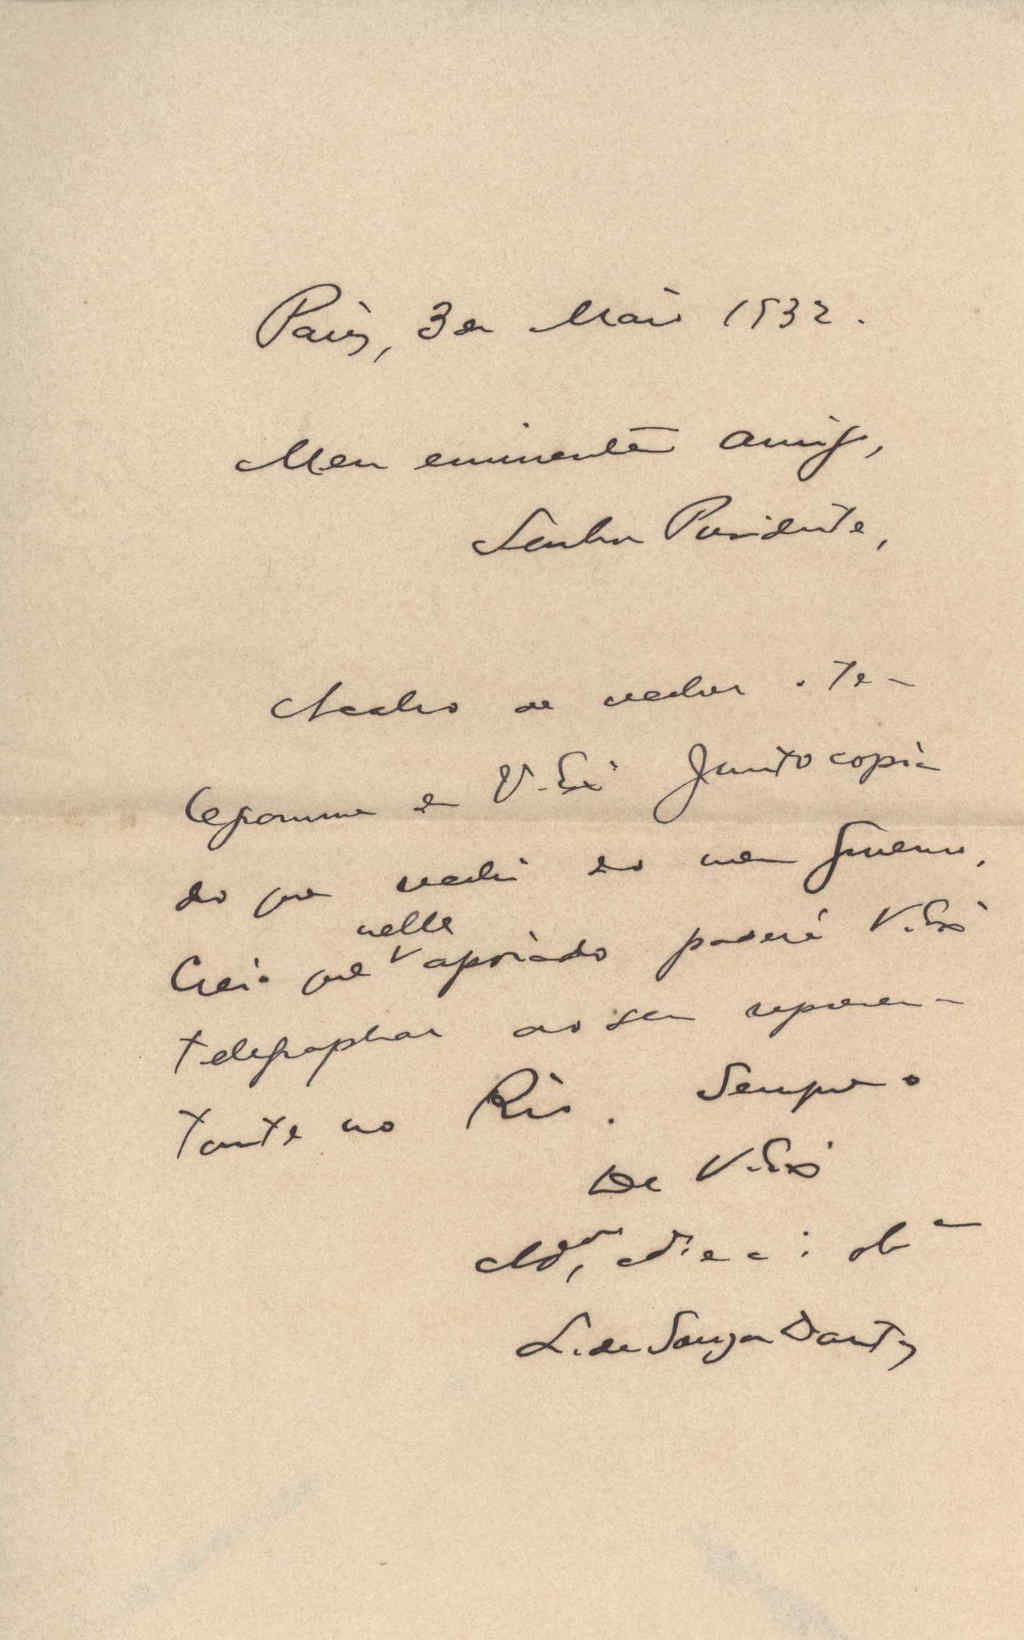 Paris, 3 de Maio 1932.
Meu eminente amigo,
Senhor Presidente,
Acabo de receber o te-
legramma de V. Exª Junto copia
do que recebi do meu Governo.
nelle
Creio que apoiado poderá V. Exª
telegraphar ao seu represen-
tante no Rio. Sempre o
De V. Exª
L. de Souza Dantas